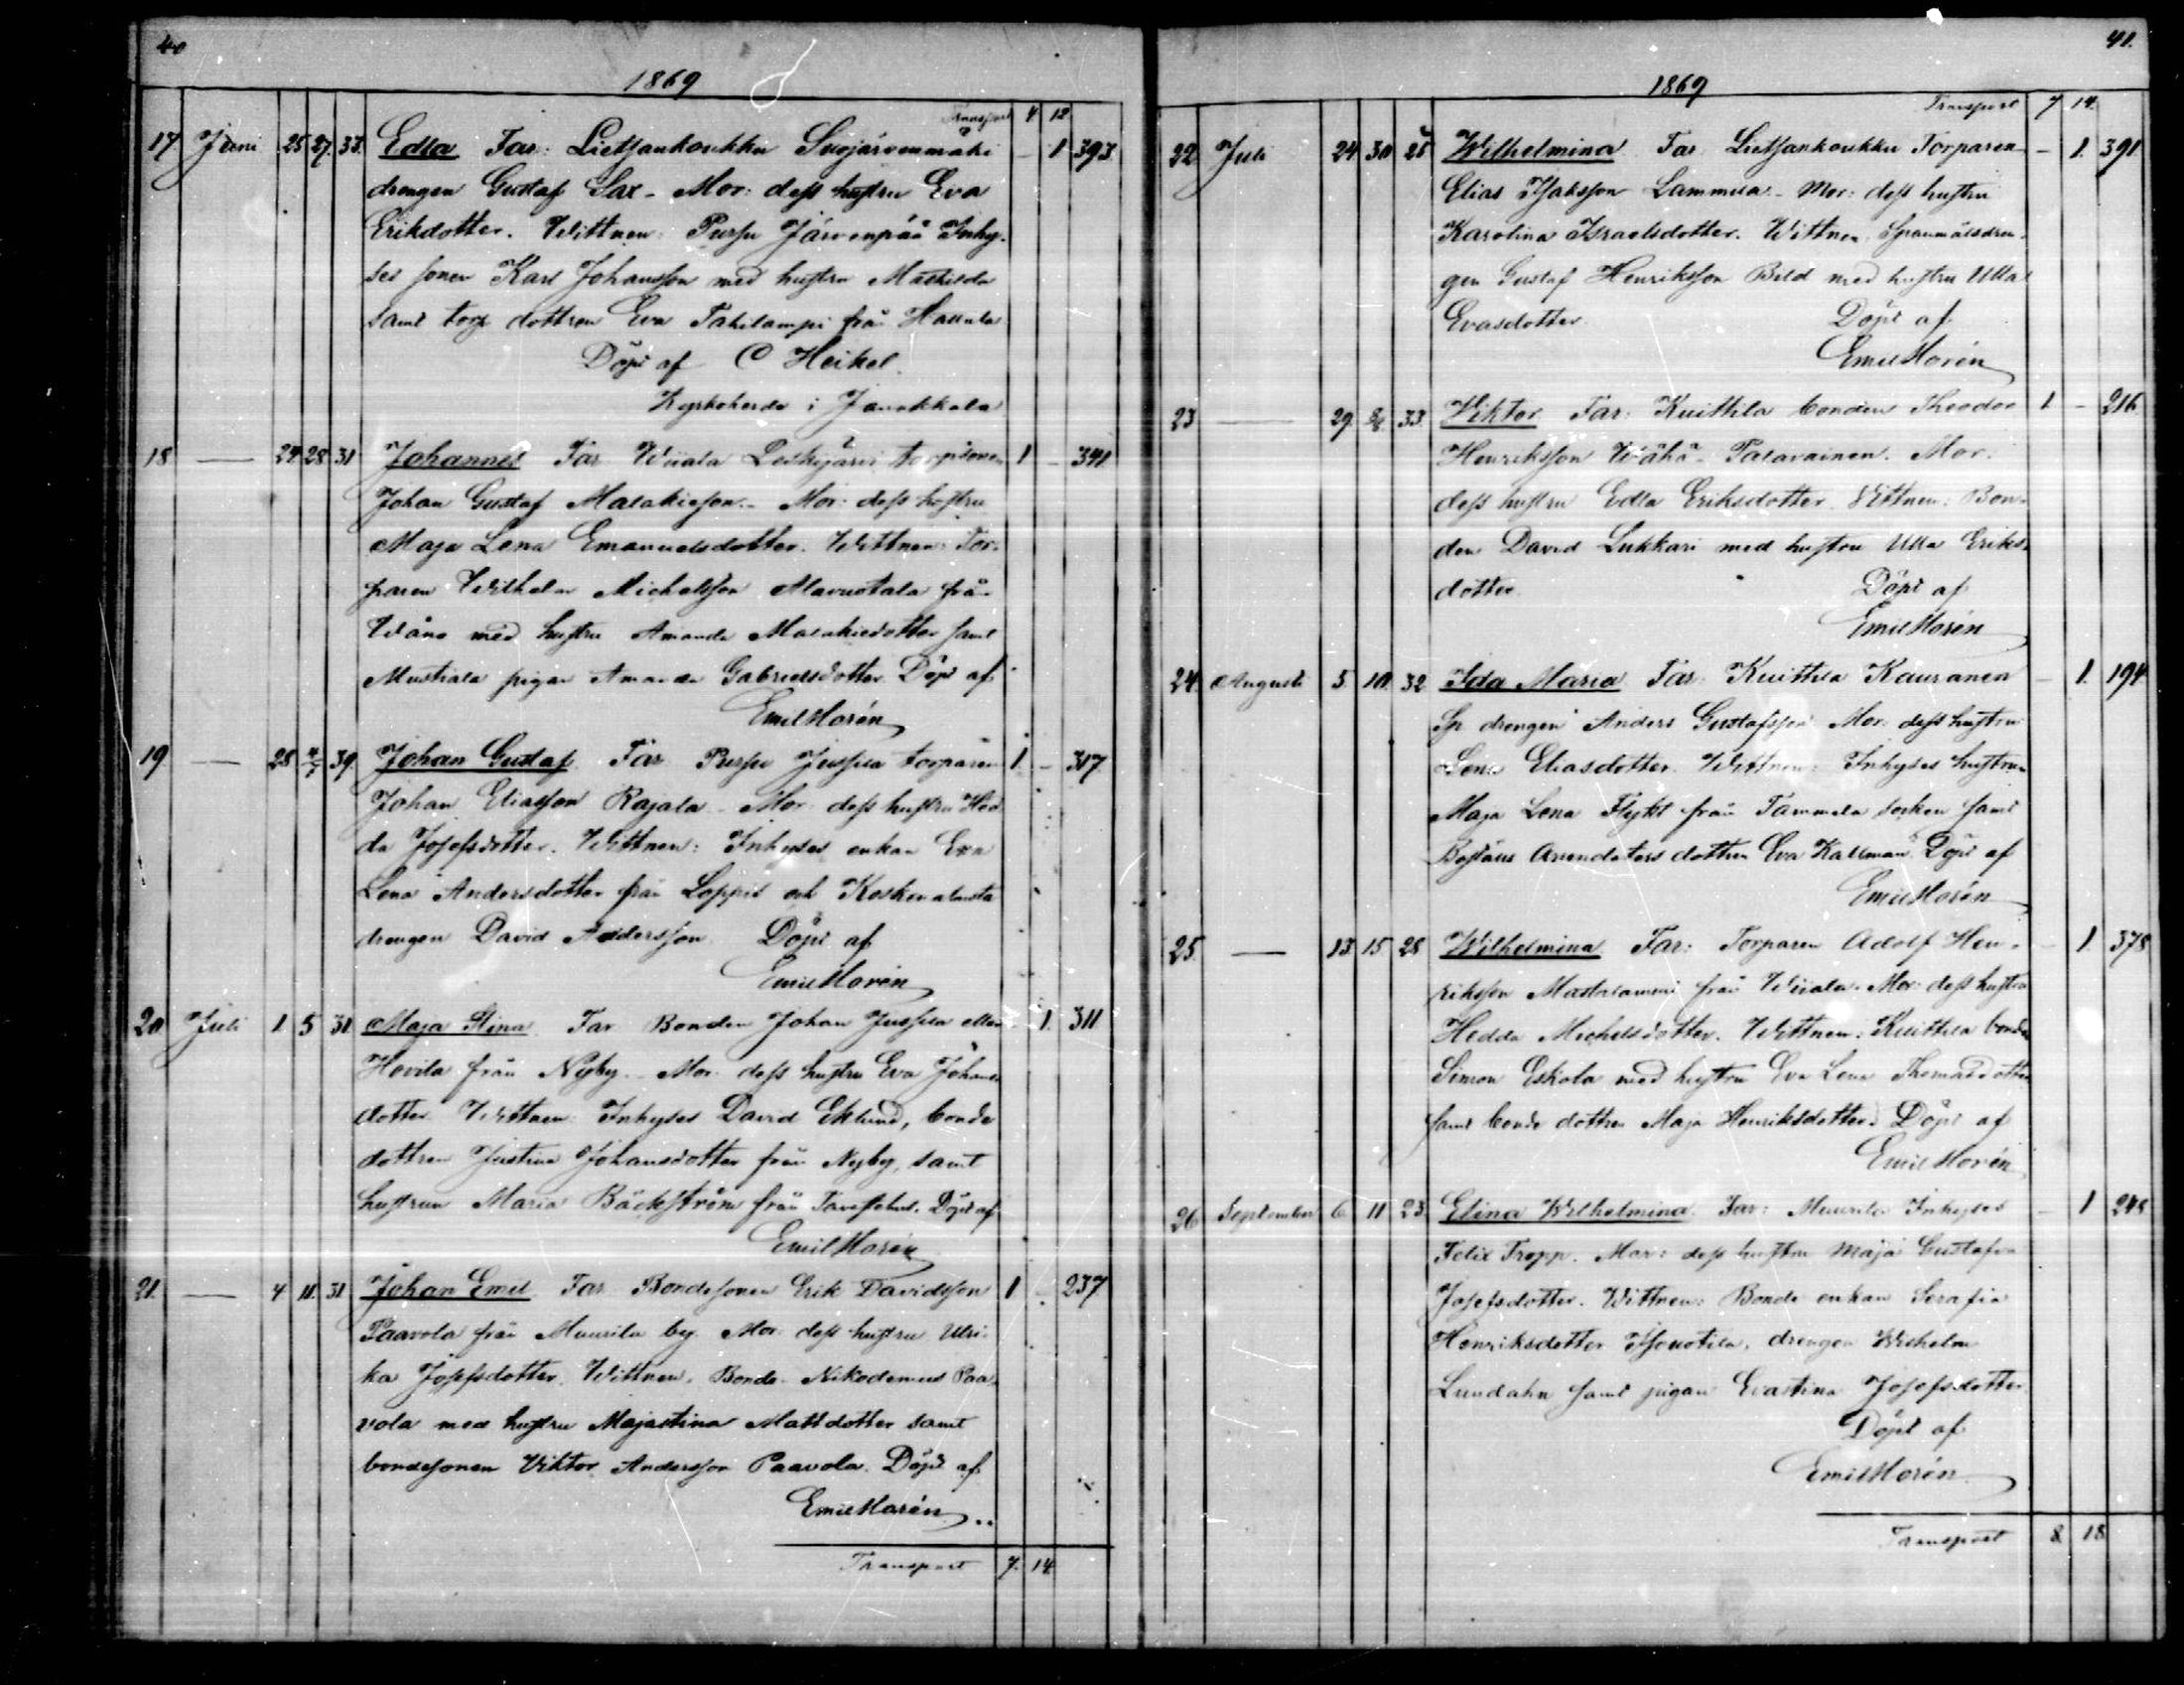 40
1869
Transport 4 12
17 Juni 25 27. 33. Edla Far: Lietsankoukku Suojärvenmäki – 1 393
drengen Gustaf Sax – Mor: dess hustru Eva
Erikdotter. Wittnen: Pursu Järvenpää Inhy-
ses sonen Karl Johansson med hustru Mathilda
samt torp dottren Eva Takilampi från Hattula
Döpt af C Heikel.
Kyrkoherde i Janakkala
18 — 24 28 31 Johannes Far Wiiala Leskijärvi torpsonen 1 – 341
Johan Gustaf Malakiesson. – Mor: dess hustru
Maja Lena Emanuelsdotter. Wittnen: Tor-
paren Wilhelm Michelsson Alavustala från
Wånå med hustru Amanda Malakiedotter samt
Mustiala pigan Amanda Gabrielsdotter. Döpt af
Emil Morén
19 — 28 4/7 39. Johan Gustaf. Far Pursu Jussila torparen 1 – 317
Johan Eliasson Rajala – Mor: dess hustru Hed
da Josefsdotter. Wittnen: Inhyses enkan Eva
Lena Andersdotter från Loppis och Koskenalusta
drengen David Andersson Döpt af
Emil Morén
20 Juli 1 5 31 Maja Stina Far Bonden Johan Jussila eller 1. 311
Hovila från Nyby. – Mor: dess hustru Eva Johans
dotter Wittnen: Inhyses David Eklund, bonde
dottren Justina Johansdotter från Nyby, samt
hustrun Maria Bäckström från Tavastehus. Döpt af
Emil Morén
21. — 4 11. 31 Johan Emil Far Bondesonen Erik Davidsson 1 – 237
Paavola från Muurila by. Mor: dess hustru Ulri-
ka Josefsdotter. Wittnen. Bonde Nikodemus Paa-
vola med hustru Majastina Mattdotter samt
bondesonen Viktor Andersson Paavola. Döpt af
Emil Morén
Transport 7. 14
41.
1869
Transport 7 14.
22 Juli 24 30 25 Wilhelmina Far Lietsankoukku Torparen – 1. 391
Elias Isaksson Lammila. – Mor: dess hustru
Karolina Israelsdotter. Wittnen. Spanmålsdren-
gen Gustaf Henriksson Bild med hustru Ulla
Evasdotter Döpt af
Emil Morén
23 — 29. 33. Viktor Far: Kuittila bonden Theodor 1 – 216
Henriksson Wähä-Palavainen. Mor.
dess hustru Edla Eriksdotter Wittnen: Bon-
den David Lukkari med hustru Ulla Eriks-
dotter Döpt af
Emil Morén
24. Augusti 5. 10. 32 Ida Maria Far: Kuittila Kauranen – 1. 194
Sp drengen Anders Gustafsson Mor: dess hustru
Lena Eliasdotter. Wittnen: Inhyses hustrun
Maja Lena Flykt från Tammela socken samt
Arendators dottren Eva Kallman. Döpt af
Emil Morén
25. — 13 15 28 Wilhelmina Far: Torparen Adolf Hen- – 1. 378
riksson Mastalammi från Wiiala. Mor: dess hustru
Hedda Michelsdotter. Wittnen: Kuittila bonden
Simon Eskola med hustru Eva Lena Thomasdotter
samt bonde dottren Maja Henriksdotter. Döpt af
Emil Morén
26 September 6. 11 23 Elina Wilhelmina. Far: Muurila Inhyses – 1 248
Felix Tropp. Mor: dess hustru Maja Gustafva
Josefsdotter. Wittnen: Bonde enkan Serafia
Henriksdotter Isonotila, drengen Wilhelm
Lundahn samt pigan Evastina Josefsdotter
Döpt af
Emil Morén
Transport 8 18